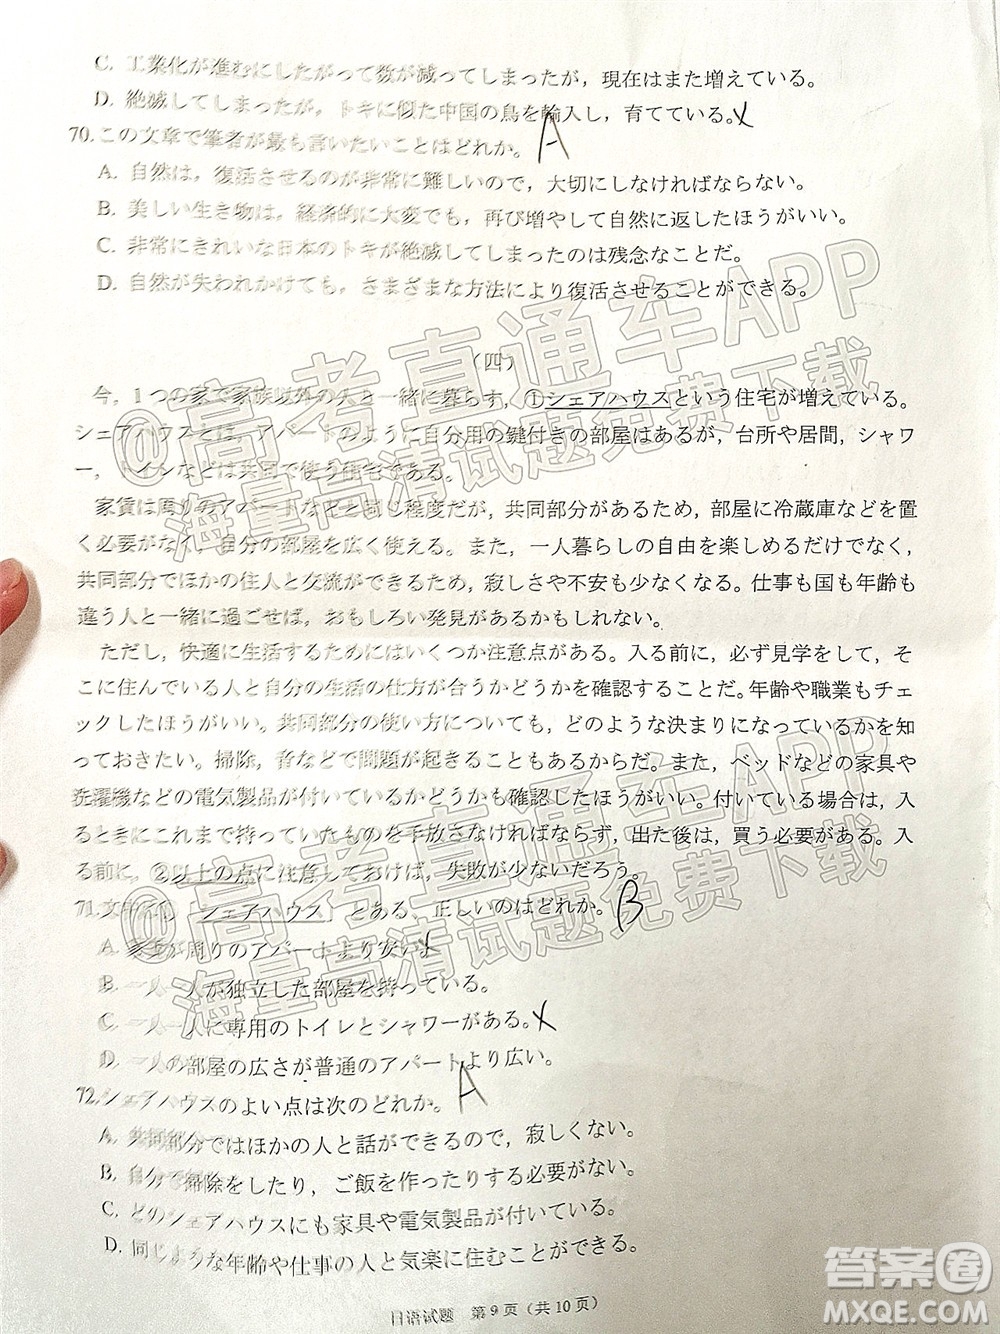 C. 工業化が進むにしたがって数が減ってしまったが，現在はまた増えている。
D. 絶滅してしまったが，トキに似た中国の鳥を輸入し，育てている。X
70.この文章で筆者が最も言いたいことはどれか。A
A. 自然は，復活させるのが非常に難しいので，大切にしなければならない。
B. 美しい生き物は，経済的に大変でも，再び増やして自然に返したほうがいい。
C. 非常にきれいな日本のトキが絶滅してしまったのは残念なことだ。
D. 自然が失われかけても，さまざまな方法により復活させることができる。
（四）
今，1つの家で家族以外の人と一緒に暮らす，①シェアハウスという住宅が増えている。
シェアハウスとは，アパートのように自分用の鍵付きの部屋はあるが，台所や居間，シャワ
ー，トイレなどは共同で使う住宅である。
家賃は周りのアパートなどと同じ程度だが，共同部分があるため，部屋に冷蔵庫などを置
く必要がなく，自分の部屋を広く使える。また，一人暮らしの自由を楽しめるだけでなく，
共同部分でほかの住人と交流ができるため，寂しさや不安も少なくなる。仕事も国も年齢も
違う人と一緒に過ごせば，おもしろい発見があるかもしれない。
ただし，快適に生活するためにはいくつか注意点がある。入る前に，必ず見学をして，そ
こに住んでいる人と自分の生活の仕方が合うかどうかを確認することだ。年齢や職業もチェ
ックしたほうがいい。共同部分の使い方についても，どのような決まりになっているかを知
っておきたい。掃除，音などで問題が起きることもあるからだ。また，ベッドなどの家具や
洗濯機などの電気製品が付いているかどうかも確認したほうがいい。付いている場合は，入
るときにこれまで持っていたものを手放さなければならず，出た後は，買う必要がある。入
る前に，②以上の点に注意しておけば，失敗が少ないだろう。
71.文章に「シェアハウス」とある、正しいのはどれか。B
A. 家賃が周りのアパートより安い。X
B. 一人一人が独立した部屋を持っている。
C. 一人一人に専用のトイレとシャワーがある。X
D. 一人の部屋の広さが普通のアパートより広い。
72.シェアハウスのよい点は次のどれか。A
A. 共同部分ではほかの人と話ができるので，寂しくない。
B. 自分で掃除をしたり，ご飯を作ったりする必要がない。
C. どのシェアハウスにも家具や電気製品が付いている。
D. 同じような年齢や仕事の人と気楽に住むことができる。
日语试题 第9页（共10页）
@高考直通车APP
海量高清试题免费下载
@高考直通车APP
海量高清试题免费下载
答案圈
MXQE.COM